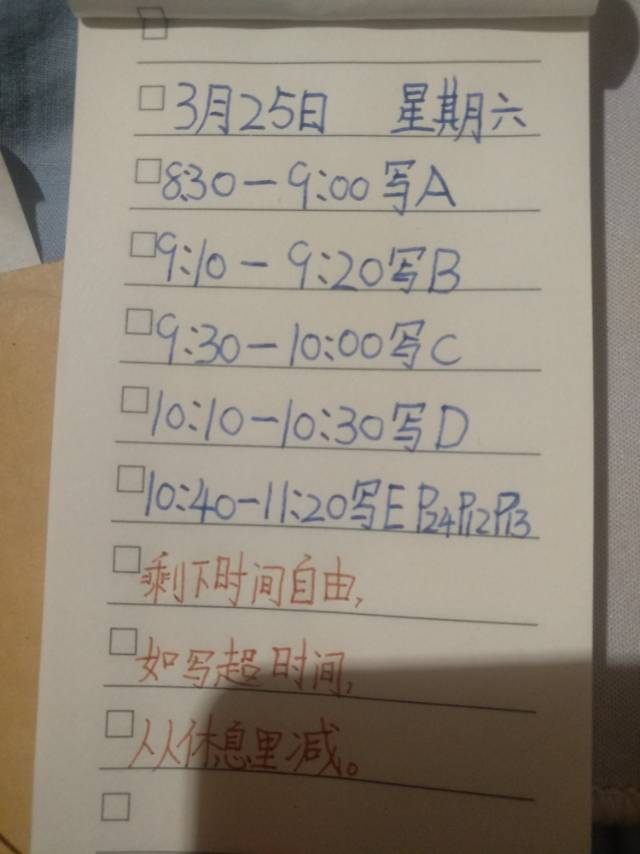 3月25日 星期六
8:30-9:00写A
9:10-9:20写B
9:30-10:00写C
10:10-10:30写D
10:40-11:20写E P24P12P13
剩下时间自由,
如写超时间,
从休息里减。